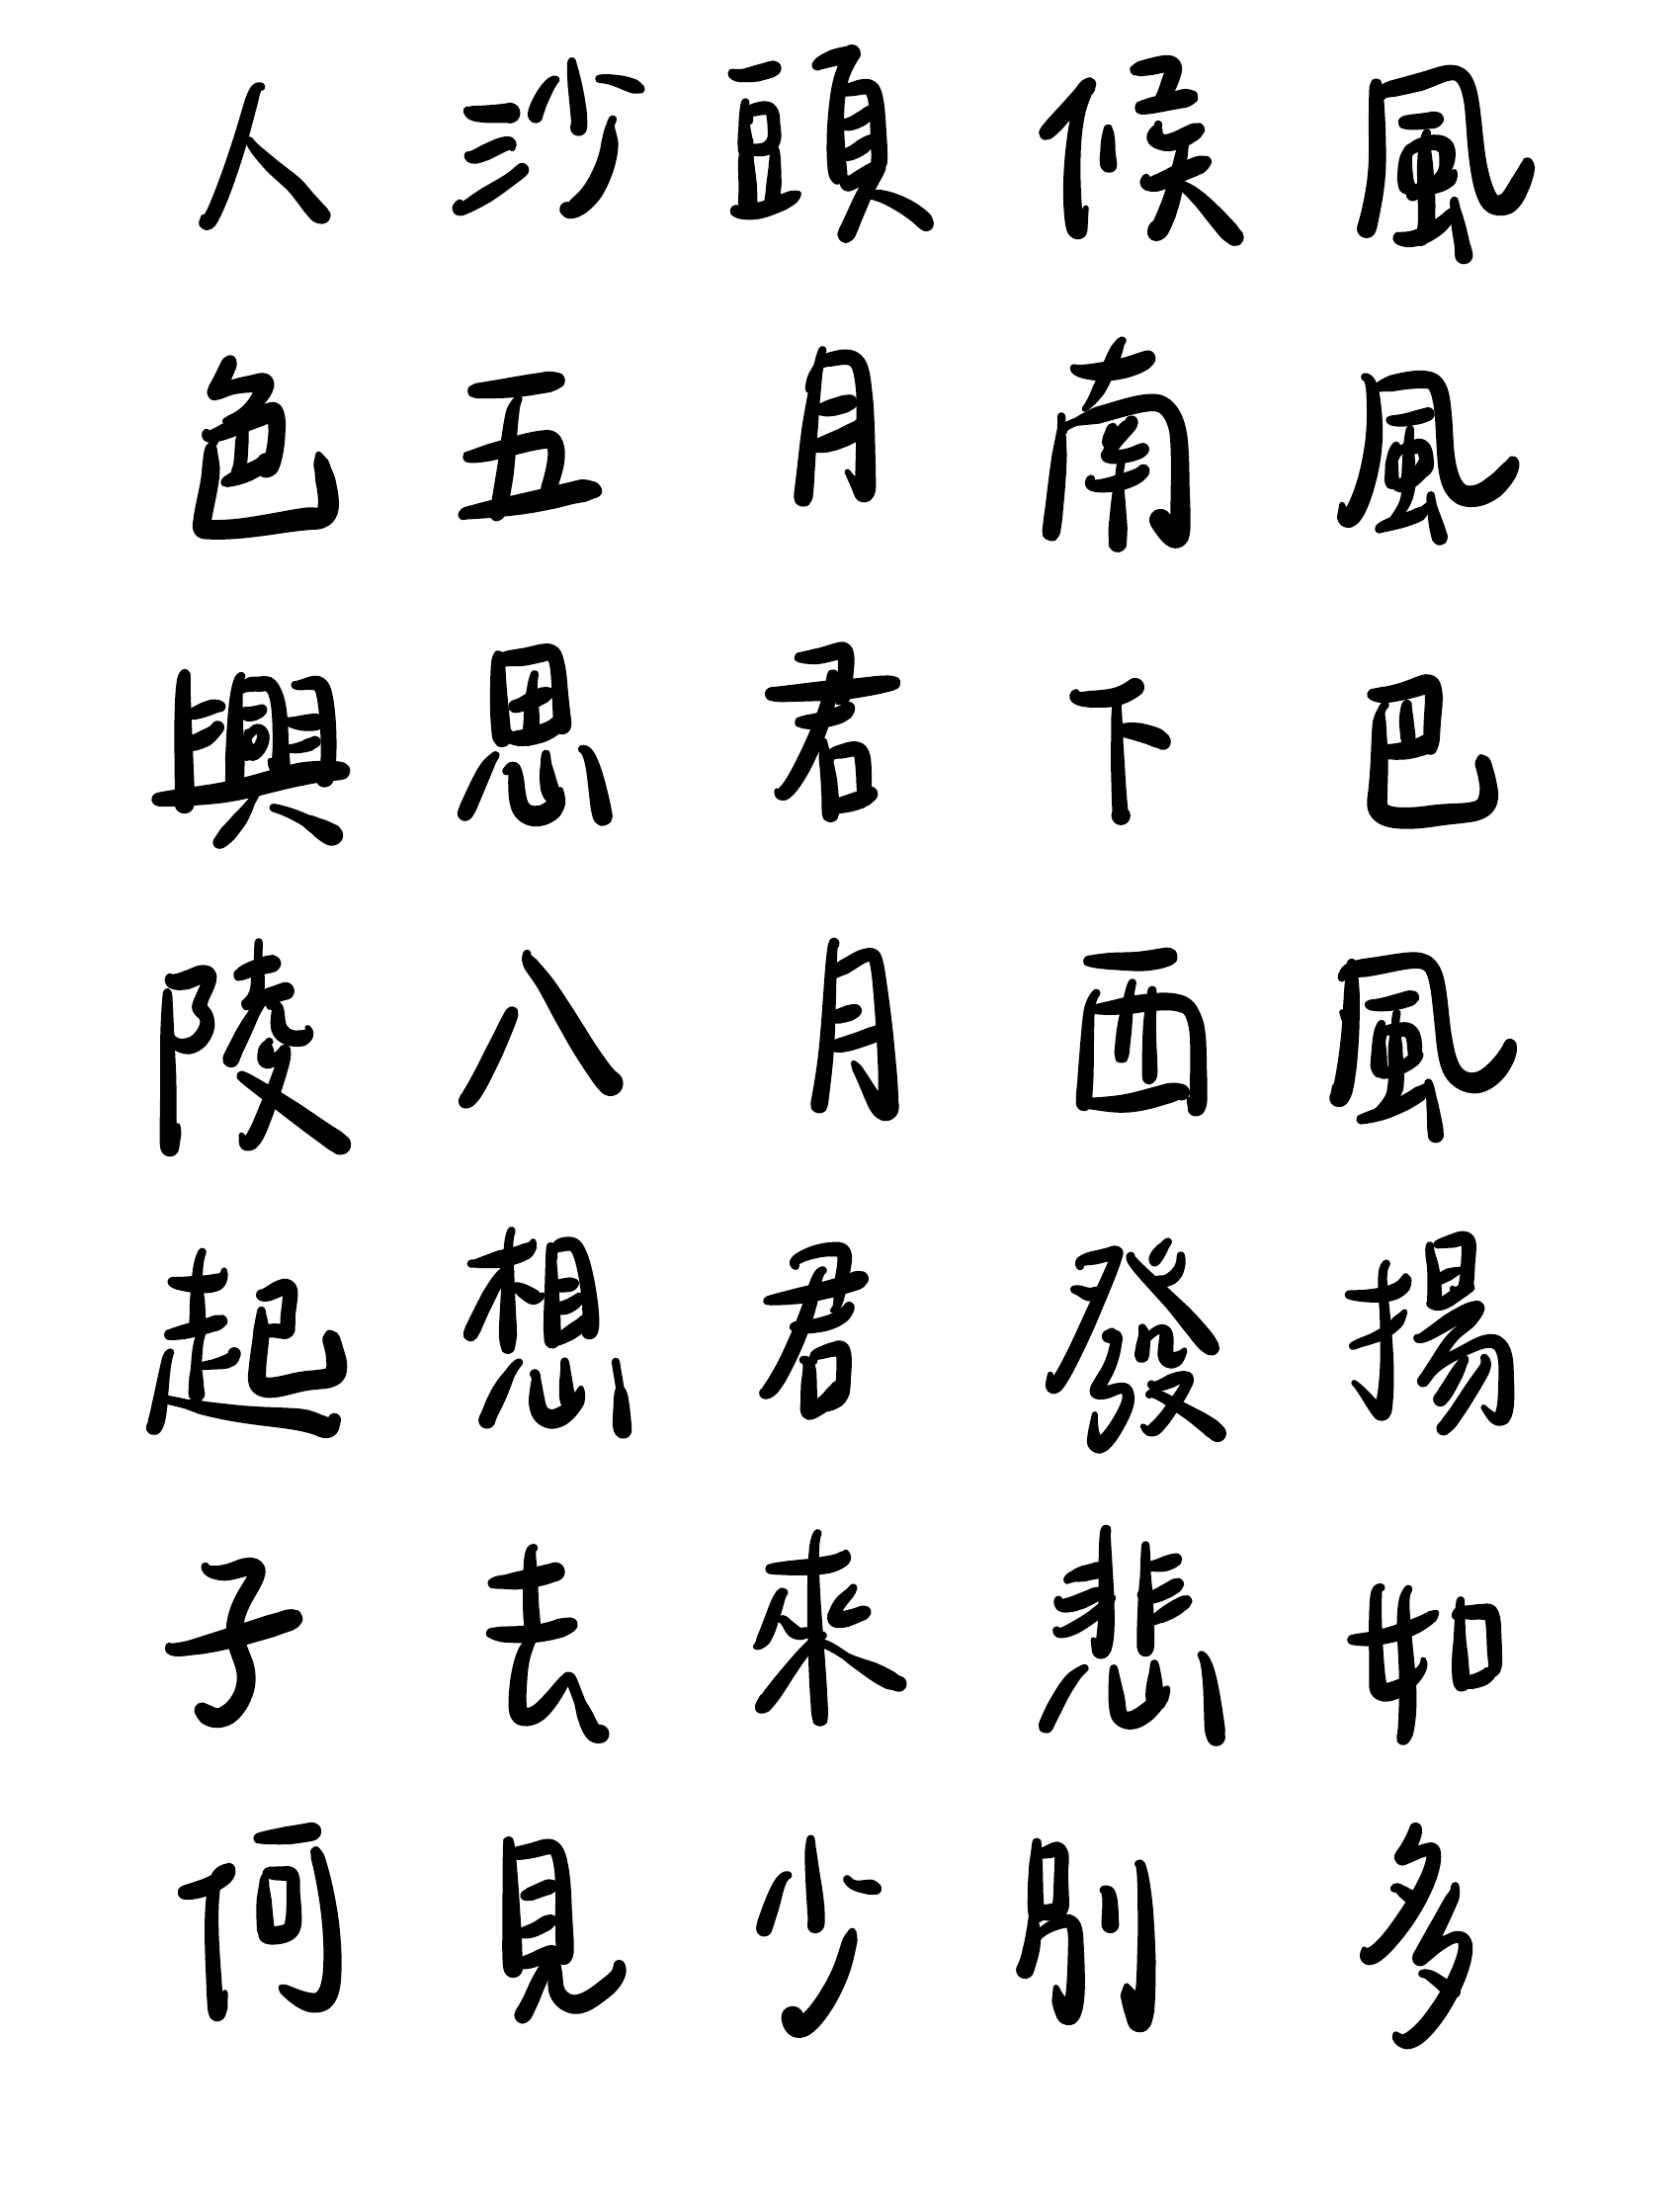 人沙頭候風
色五月南風
興思君下巴
陵八月西風
起想君發揚
子去來悲如
何見少別多